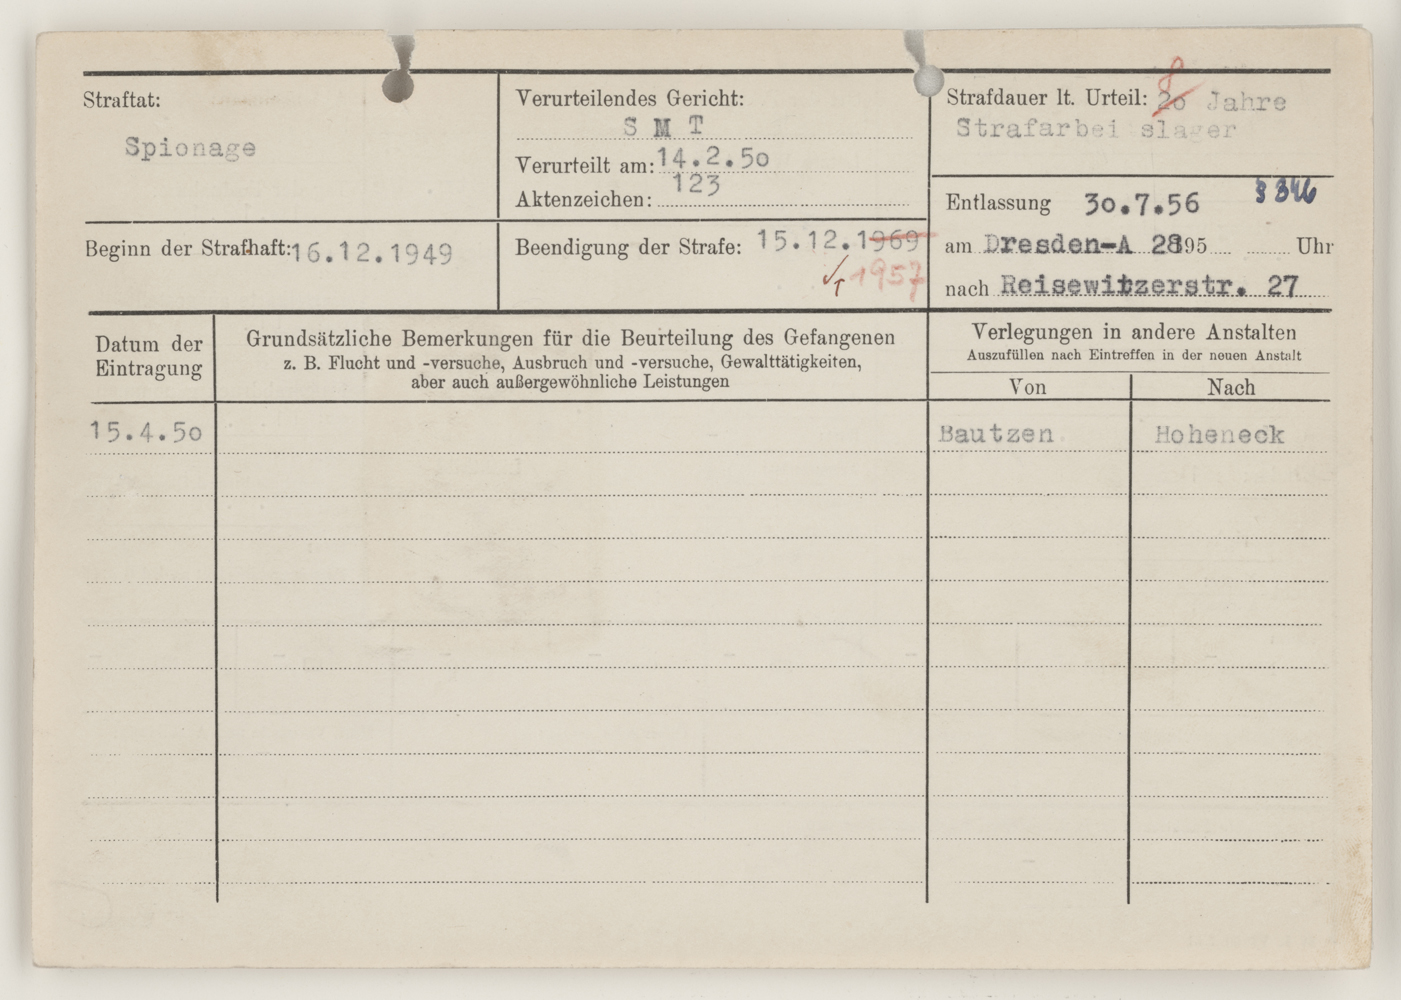 Straftat:
Spionage
Verurteilendes Gericht:
S M T
Verurteilt am: 14.2.50
Aktenzeichen: 123
Strafdauer lt. Urteil: 20 8 Jahre
Strafarbei slager
Beginn der Strafhaft: 16.12.1949
Beendigung der Strafe: 15.12.1969
1957
Entlassung 30.7.56 § 346
am Dresden-A 2895 Uhr
nach Reisewitzerstr. 27
Datum der
Eintragung
Grundsätzliche Bemerkungen für die Beurteilung des Gefangenen
z. B. Flucht und -versuche, Ausbruch und -versuche, Gewalttätigkeiten,
aber auch außergewöhnliche Leistungen
Verlegungen in andere Anstalten
Auszufüllen nach Eintreffen in der neuen Anstalt
Von Nach
15.4.50 Bautzen Hoheneck